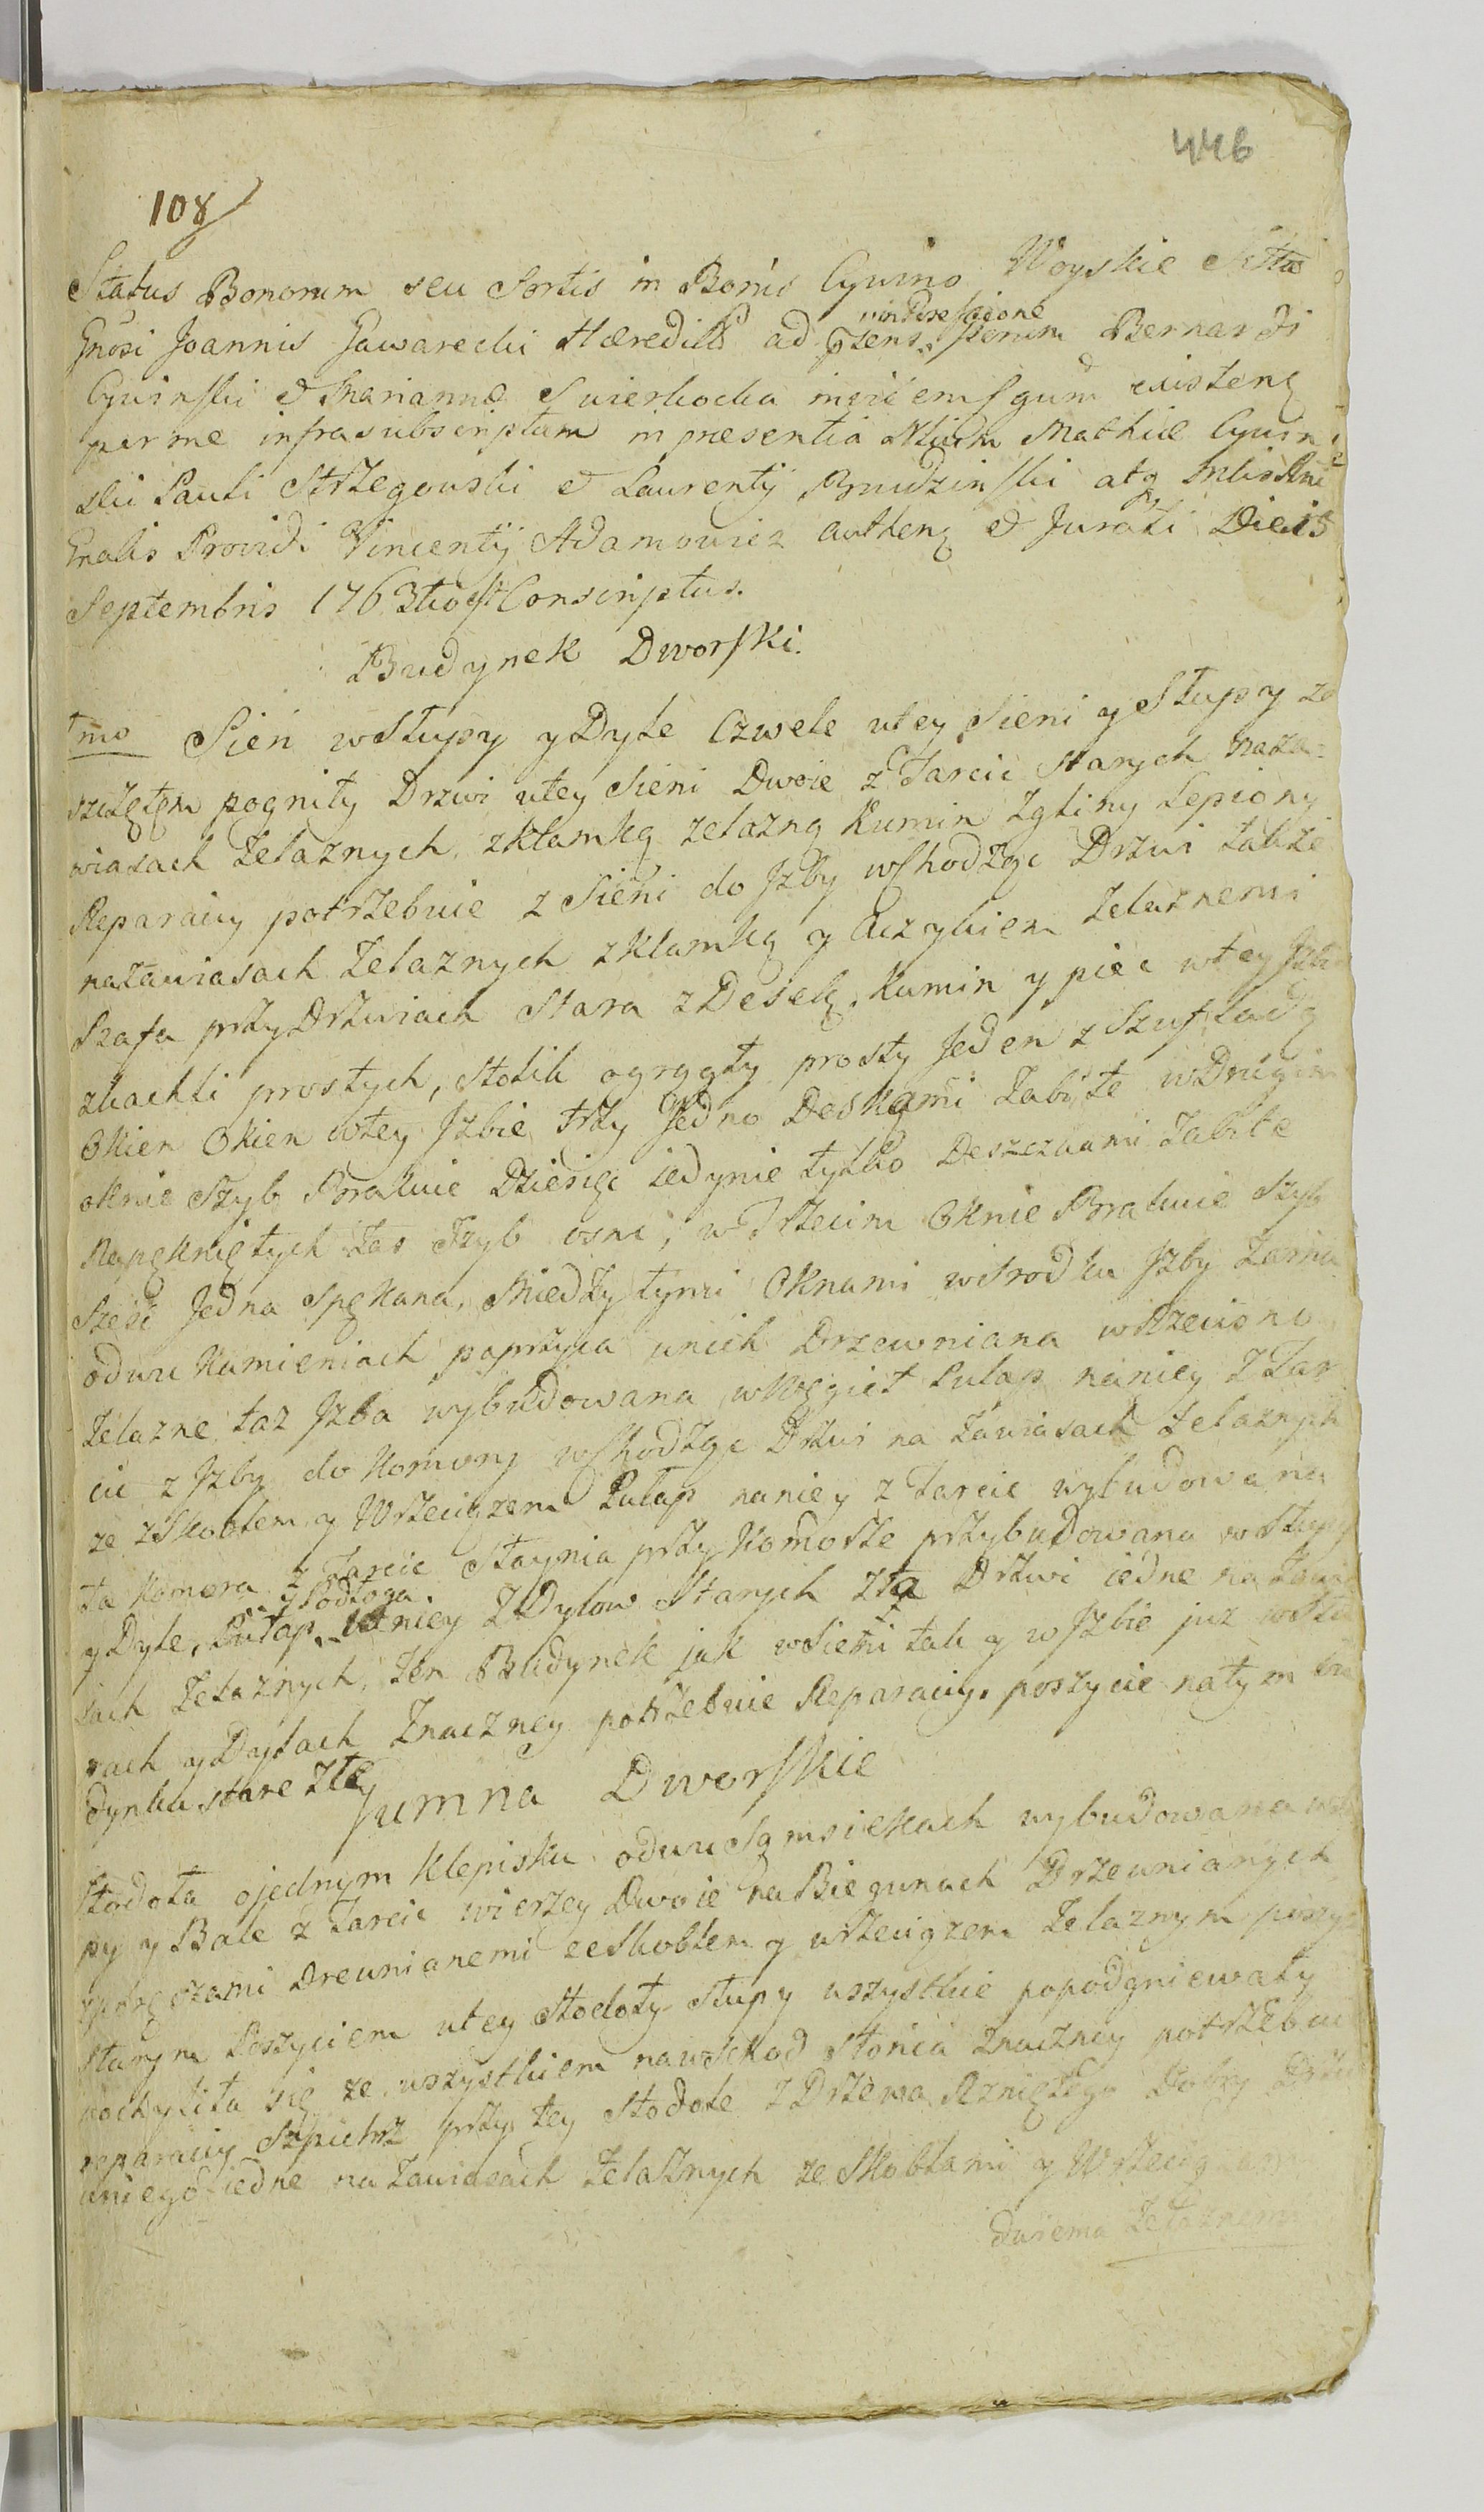 446
108
Status Bonorum seu Sortis in Bonis Cywino Woyskie Sitta
Gnosi Joannis Gawarecki Hæreditis ad in Possessione
pzens. Bernardi
Cywinski & Mariannæ Swierkocka existenȝ
per me infrascubscriptum in præsentia Mathiæ Cywin:
ski Pauli Strzegowski & Laurentÿ Brudzinski atq
Gnalis Providi Vincentÿ Adamowicz authenȝ & Jurati Die 15
Septembris 1763tio est Conscriptus.
Budynek Dworski.
1mo Sień w Słupy y Dyle Czwele utey Sieni y Słupy ze
szczętem pogniły Drzwi utey Sieni Dwoie z Tarcic Starych naza:
wiasach Żelaznych, zkłamką zelazną Kumin zgliny Lepiony
Reparacyi potrzebuie z Sieni do Jzby wchodząc Drzwi także
nazawiasach Żelaznych zKlamką y Aczykiem Żelaznemi
Szafa przy Drzwiach Stara zDesek, Kumin y piec w tey Jzbie
zkachli prostych, Stolik ogrągły prosty Jeden z Szufladą
Okien Okien wtey Jzbie trzy Jedno Deskami Zabite w Drugim
oknie Szyb Brakuie Dziesięc iedynie tylko Deszczkami Zabite
Napękniętych Zas Szyb osm, w Trzecim Oknie Brakuie Szyb
Sześć Jedna Spękana, Miedzy tymi Oknami wsrodku Jzby Żarna
odwu Kamieniach paprzyca unich Drzewniana wrzeciono
Żelazne, taz Jzba wybudowana wWęgieł Pułap naniey Z Tar
cic z Jzby do Komory wchodząc Drzwi na Zawiasach Żelaznych
ze zSkoblem y Wrzeciązem Pułap naniey z Tarcic wybudowana
Ta Komora z Tarcic Staynia przy Komorze przybudowana w Słupy
y Dyle, Pułap y Podłoga wniey Z Dylow Starych zła Drzwi iedne na Zawia
sach Żelaznych, Ten Budynek jak wSieni tak y w Jzbie juz w Słu
pach y Dylach Znaczney potrzebuie Reparacyi, poszycie natym Bu
dynku stare złe
Gumna Dworskie
Stodoła ojednym Klepisku odwu Sąmsiekach wybudowana wSłu
py y Bale z Tarcic wierzey Dwoie na Biegunach Drzewnianych
zporęczami Drewnianemi ze Skoblem y wrzeciązem Żelaznym pod
starym Poszyciem utey Stodoły Słupy wszystkie popodgniewały
pochyliła się ze wszystkiem nawschod Słońca znaczney potrzebuie
reparacyi Szpichrz przy tey Stodole z Drzewa Rzniętego Dobry Drzwi
uniego iedne na Zawiasach Żelaznych ze Skoblami y Wrzeciązami
dwiema Żelaznemi